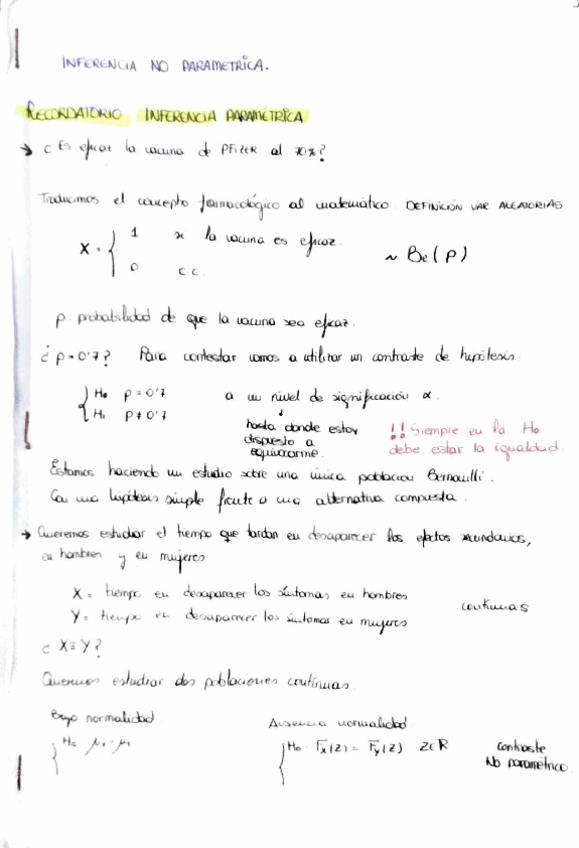 INFERENCIA NO PARAMÉTRICA.
RECORDATORIO INFERENCIA PARAMÉTRICA
→ ¿ Es eficaz la vacuna de PFIZER al 70%?
Traducimos el concepto farmacológico al matemático. DEFINICIÓN VAR ALEATORIAS
X = { 1 si la vacuna es eficaz. ~ Be(p)
0 c.c.
p: probabilidad de que la vacuna sea eficaz.
¿ p=0'7? Para contestar vamos a utilizar un contraste de hipótesis.
{ H₀ p=0'7 a un nivel de significación α.
H₁ p≠0'7
↓
hasta donde estoy
dispuesto a
equivocarme.
!! Siempre en la H₀
debe estar la igualdad.
Estamos haciendo un estudio sobre una única población Bernouilli.
Con una hipótesis simple frente a una alternativa compuesta.
→ Queremos estudiar el tiempo que tardan en desaparecer los efectos secundarios,
en hombres y en mujeres
X = tiempo en desaparecer los síntomas en hombres
Y = tiempo en desaparecer los síntomas en mujeres
continuas
¿ X≡Y?
Queremos estudiar dos poblaciones continuas.
Bajo normalidad
{ H₀
Ausencia normalidad
{ H₀ Fx(z) = Fy(z) z∈R
contraste
No paramétrico